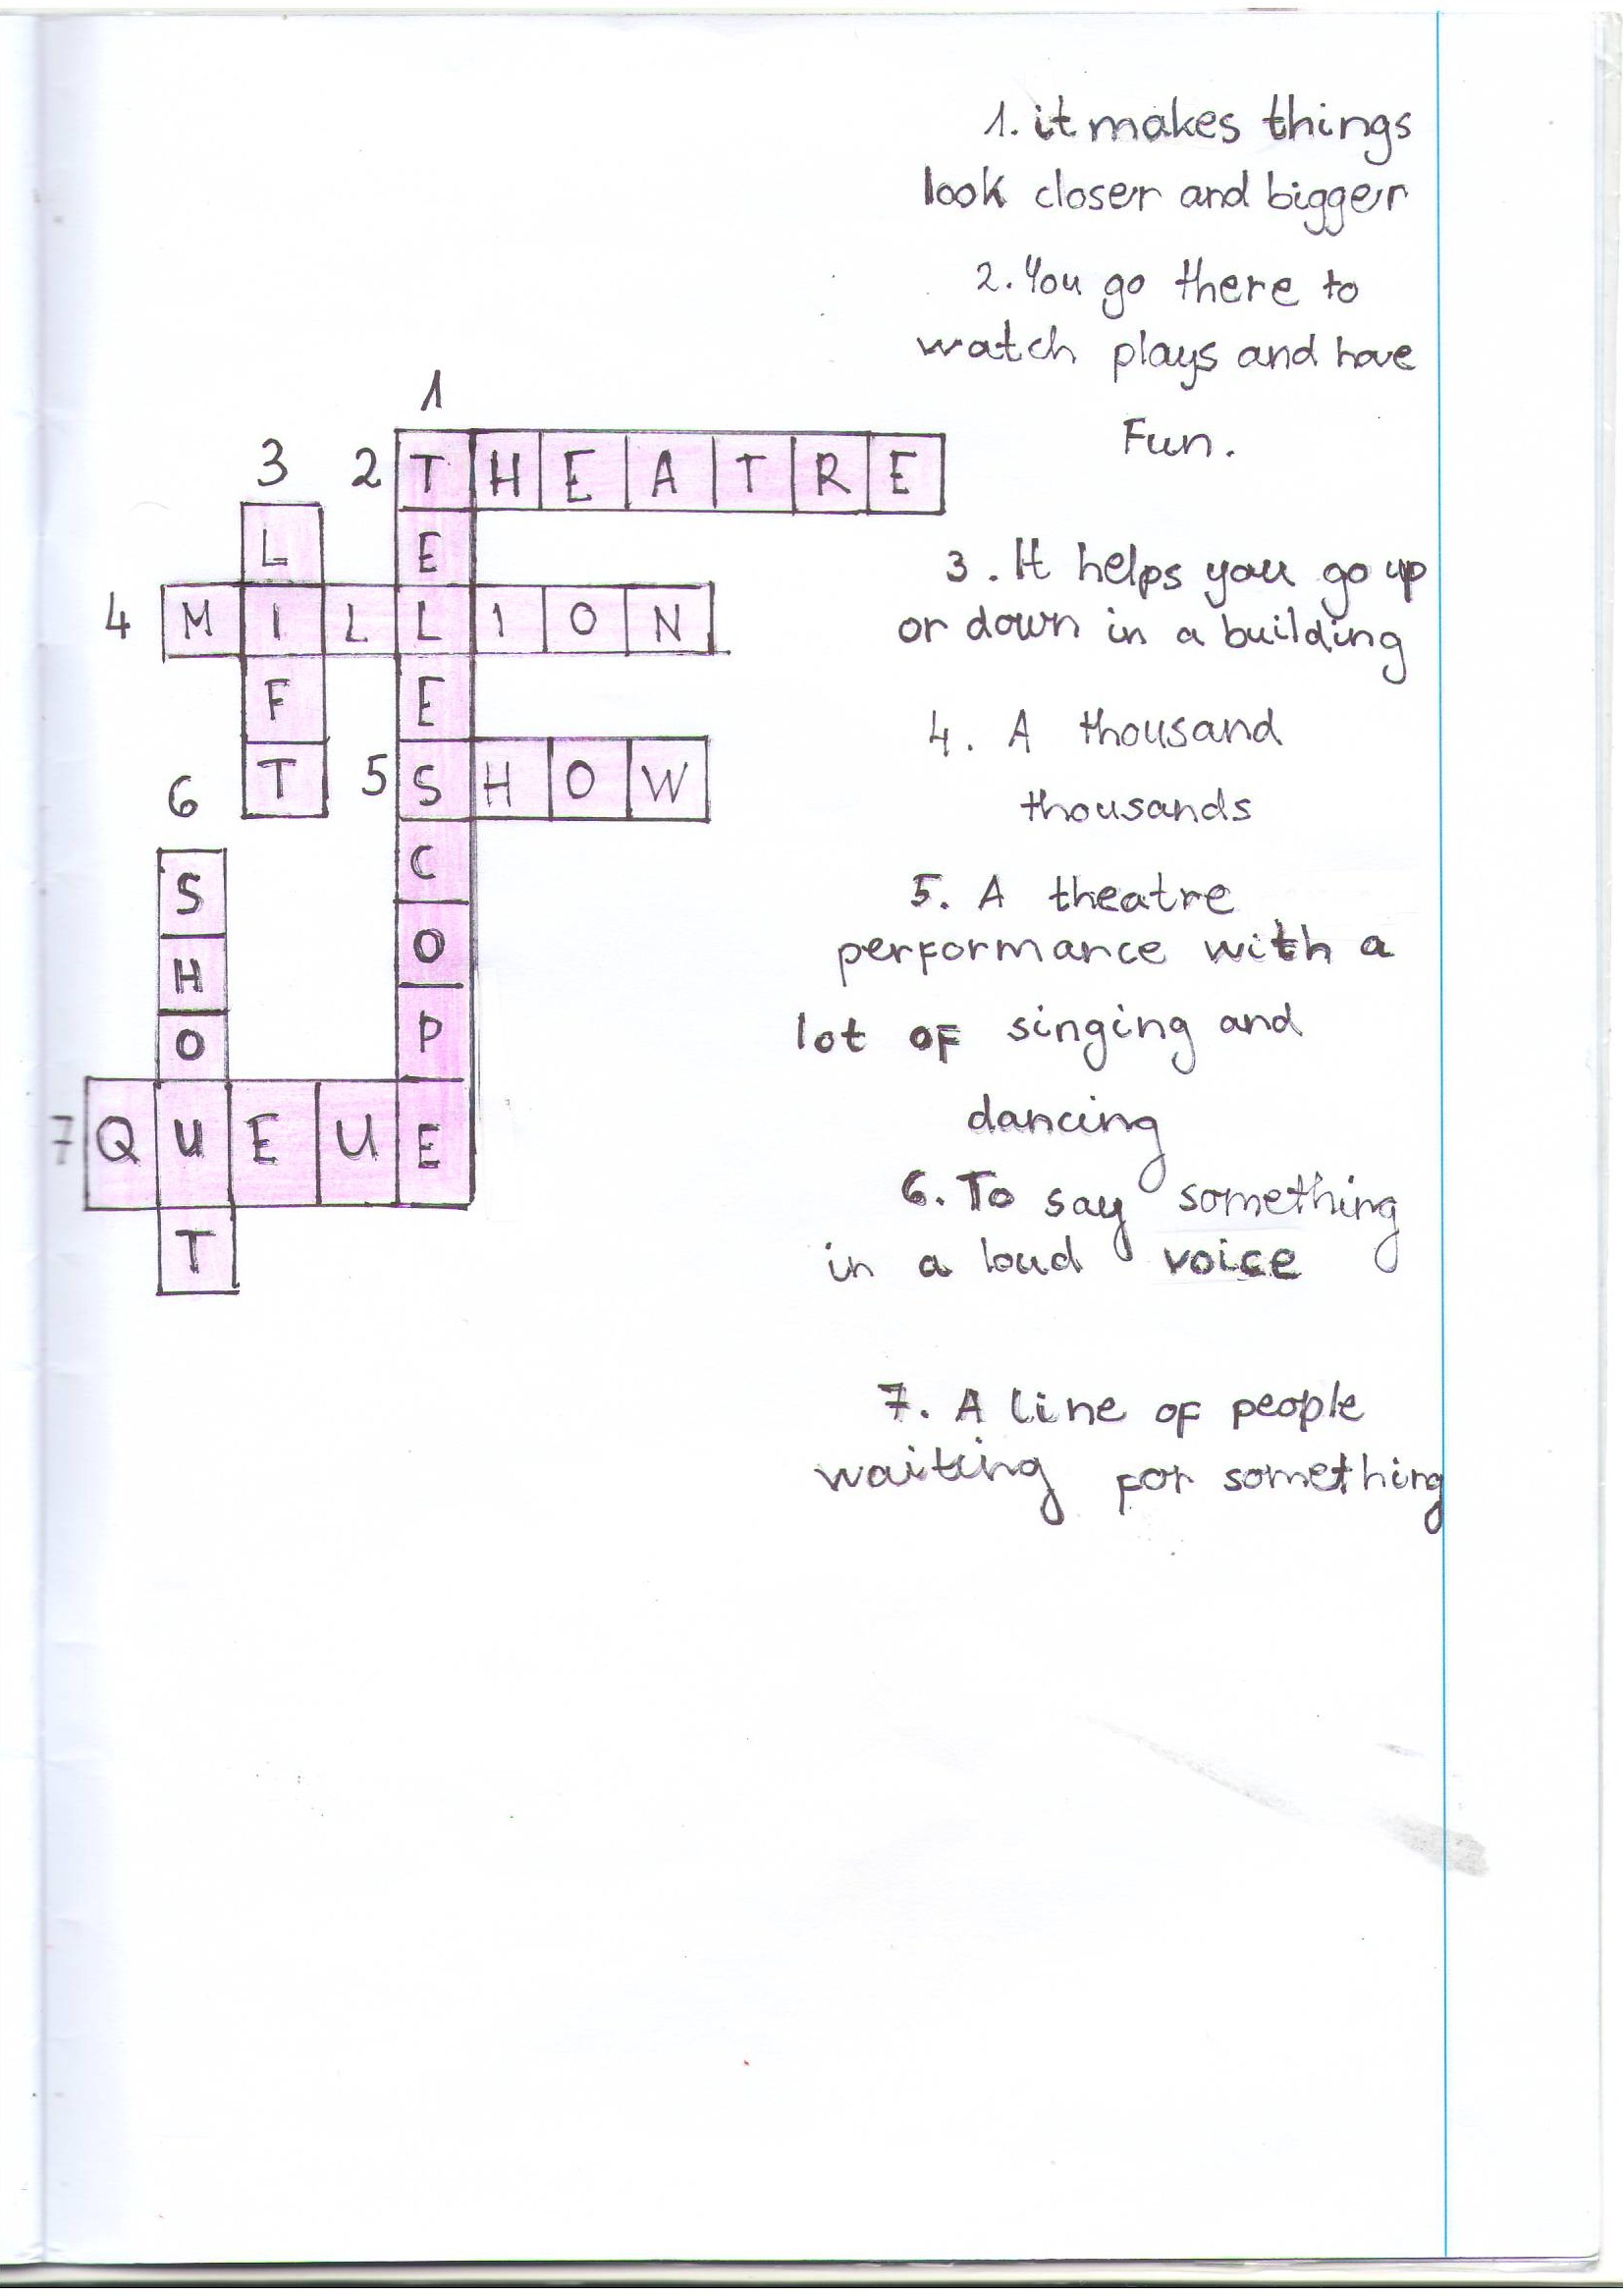 1
3 2 T H E A T R E
L E
4 M I L L I O N
F E
6 T 5 S H O W
S C
H O
O P
7 Q U E U E
T
1. it makes things
look closer and bigger
2. You go there to
watch plays and have
Fun.
3. It helps you go up
or down in a building
4. A thousand
thousands
5. A theatre
performance with a
lot of singing and
dancing
6. To say something
in a loud voice
7. A line of people
waiting for something